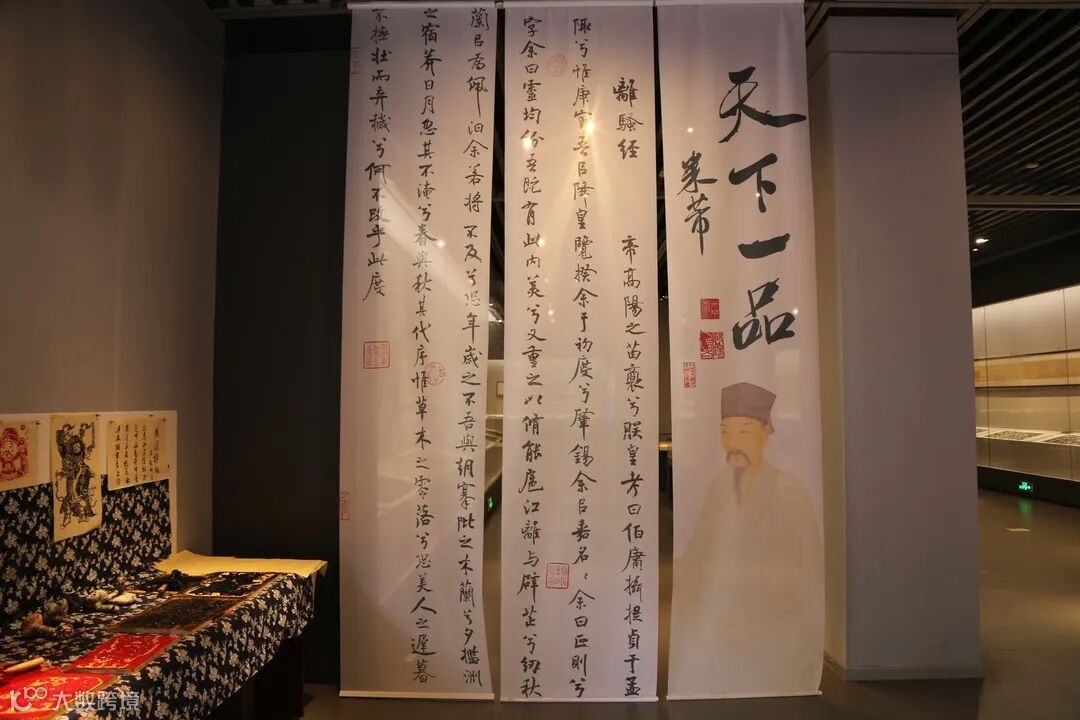 天下一品
米芾
離騷经 帝高陽之苗裔兮朕皇考曰伯庸攝提貞于孟
陬兮惟庚寅吾以降皇覽揆余于初度兮肇錫余以嘉名〻余曰正則兮
字余曰靈均纷吾既有此内美兮又重之以脩能扈江離与辟芷兮紉秋
蘭以為佩汩余若将不及兮恐年歲之不吾與朝搴阰之木蘭兮夕攬洲
之宿莽日月忽其不淹兮春與秋其代序惟草木之零落兮恐美人之遲暮
不撫壮而弃穢兮何不改乎此度
大数跨境